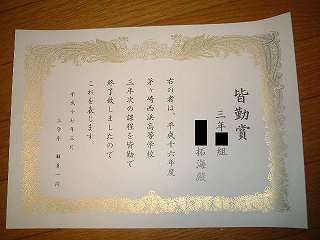 皆勤賞
三年 組
拓海殿
右の者は、平成十六年度
茅ヶ崎西浜高等学校
三年次の課程を皆勤で
終了致しましたので
これを表します。
平成十七年三月
三学年